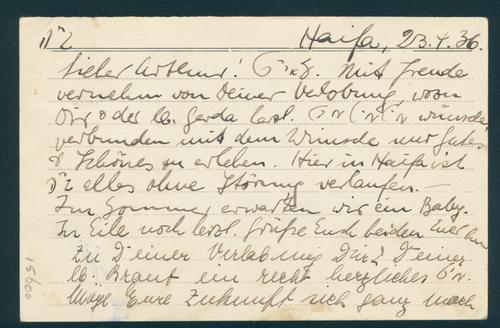 ב״ה Haifa, 23.4.36.
Lieber Arthur! Mit Freude
vernehm von Deiner Verlobung, wozu
Dir & der lb. Gerda herzl. wünsche,
verbunden mit dem Wunsche nur Gutes
& Schönes zu erleben. Hier in Haifa ist
ב״ה alles ohne Störung verlaufen. –
Im Sommer erwarten wir ein Baby.
In Eile noch herzl. Grüße Euch beiden Euer
Zu Deiner Verlobung Dir & Deiner
lb. Braut ein recht herzliches
Möge Eure Zukunft sich ganz nach
15600